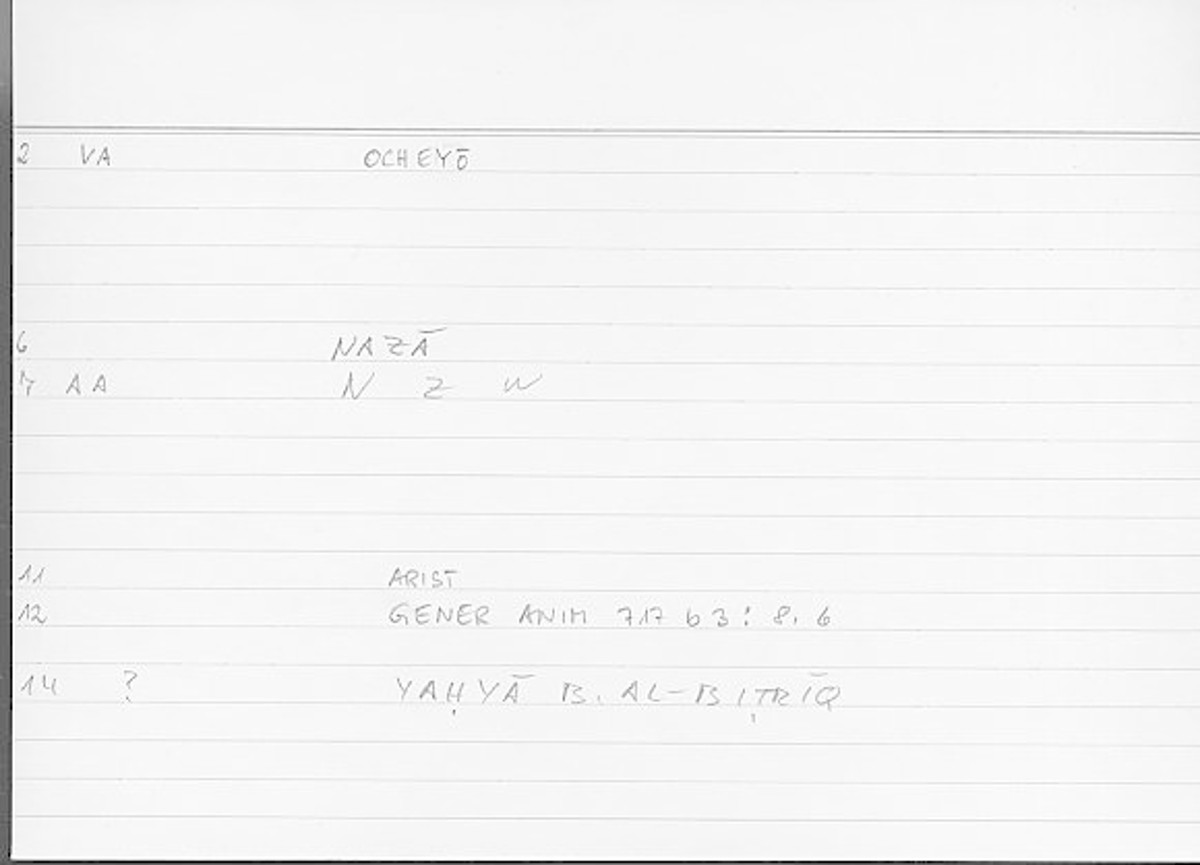 2 VA OCHEYŌ
6 NAZĀ
7 AA N Z W
11 ARIST
12 GENER ANIM 717 b 3 : 8. 6
14 ? YAḤYĀ B. AL-BIṬRĪQ